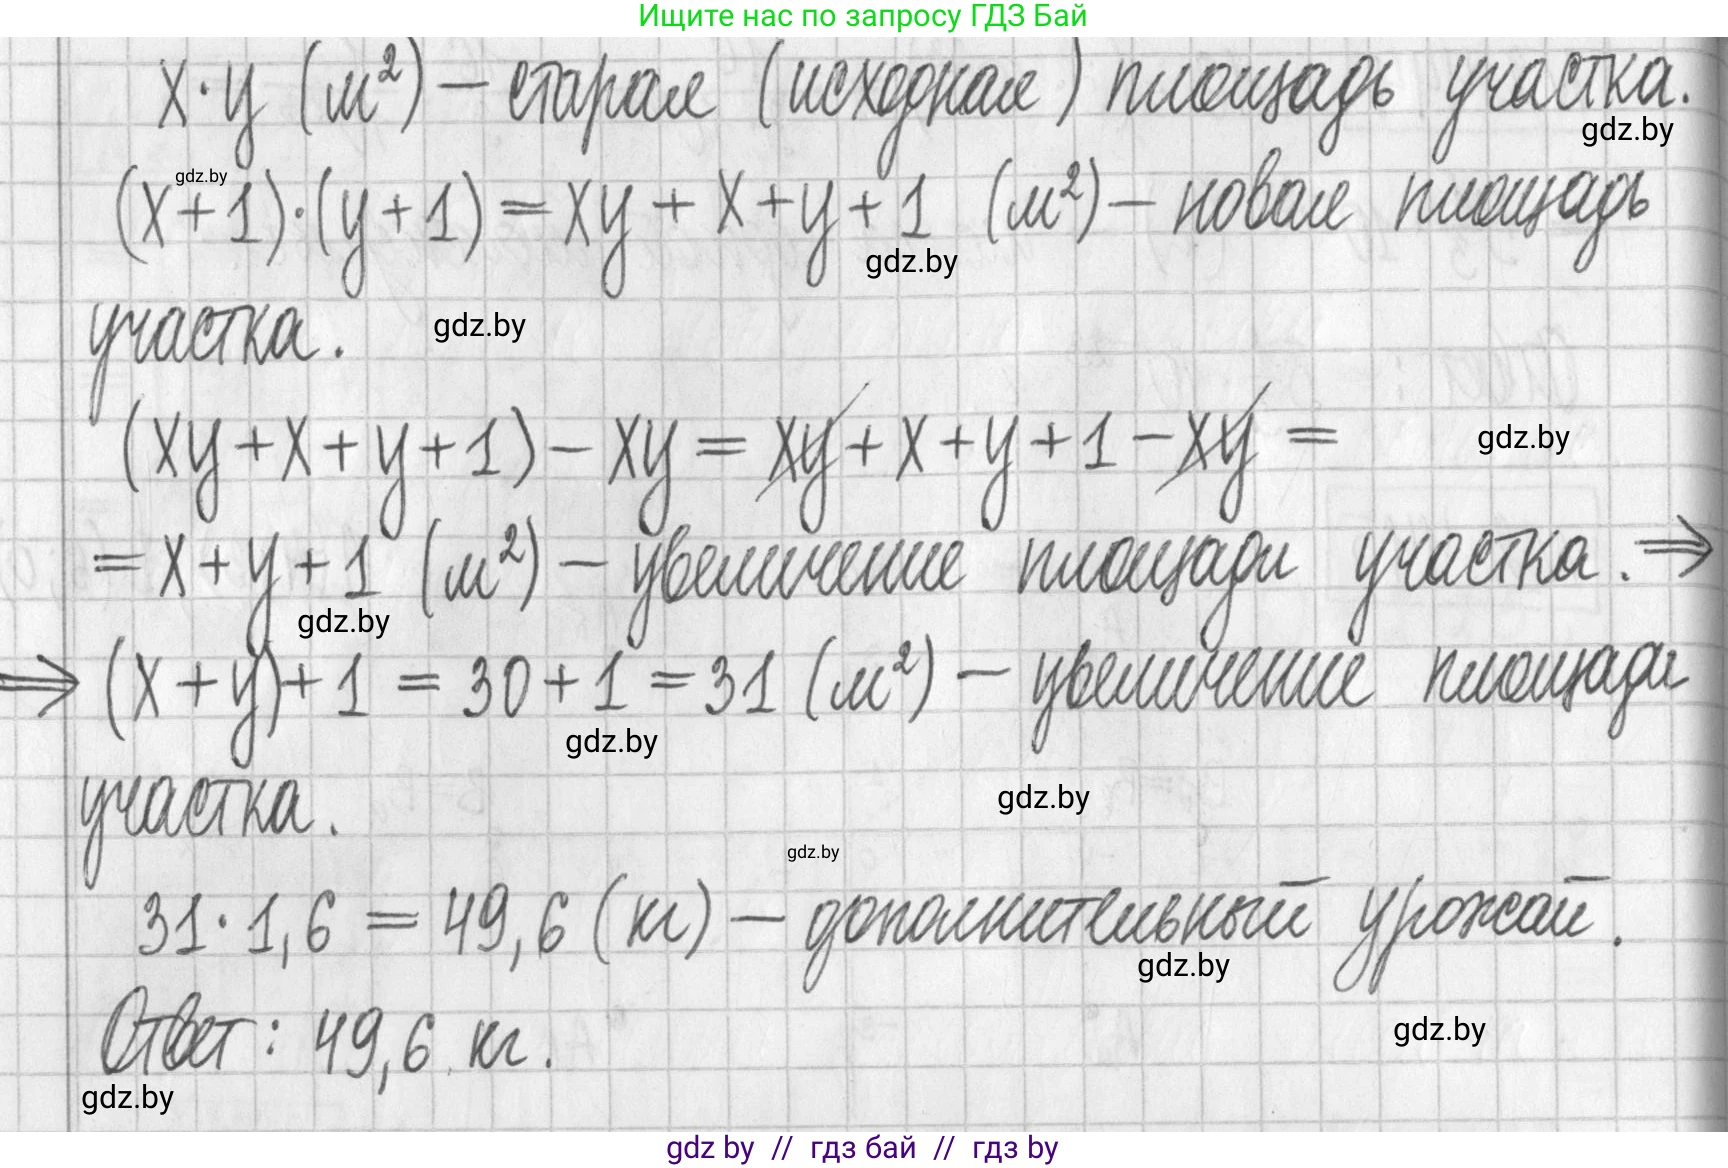 Ищите нас по запросу ГДЗ Бай
x·y (м²) – старая (исходная) площадь участка.
gdz.by
gdz.by
(x+1)·(y+1)=xy+x+y+1 (м²) – новая площадь
gdz.by
участка.
gdz.by
(xy+x+y+1)–xy=xy+x+y+1–xy=
gdz.by
=x+y+1 (м²) – увеличение площади участка. ⇒
gdz.by
⇒ (x+y)+1=30+1=31 (м²) – увеличение площади
gdz.by
участка.
gdz.by
gdz.by
31·1,6=49,6 (кг) – дополнительный урожай.
gdz.by
Ответ: 49,6 кг.
gdz.by
gdz.by
gdz by // гдз бай // гдз by